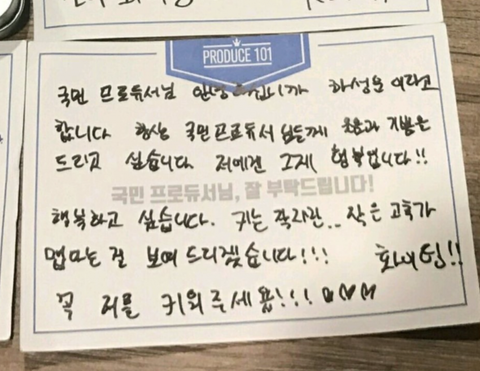 PRODUCE 101
국민 프로듀서님 안녕하십니까 하성운 이라고
합니다 항상 국민프로듀서님들께 웃음과 기쁨을
드리고 싶습니다 저에겐 그게 행복입니다!!
국민 프로듀서님, 잘 부탁드립니다!
행복하고 싶습니다. 키는 작지만.. 작은 고추가
맵다는 걸 보여 드리겠습니다!!!
화이팅!!
꼭 저를 키워주세용!!! ♡♡♡